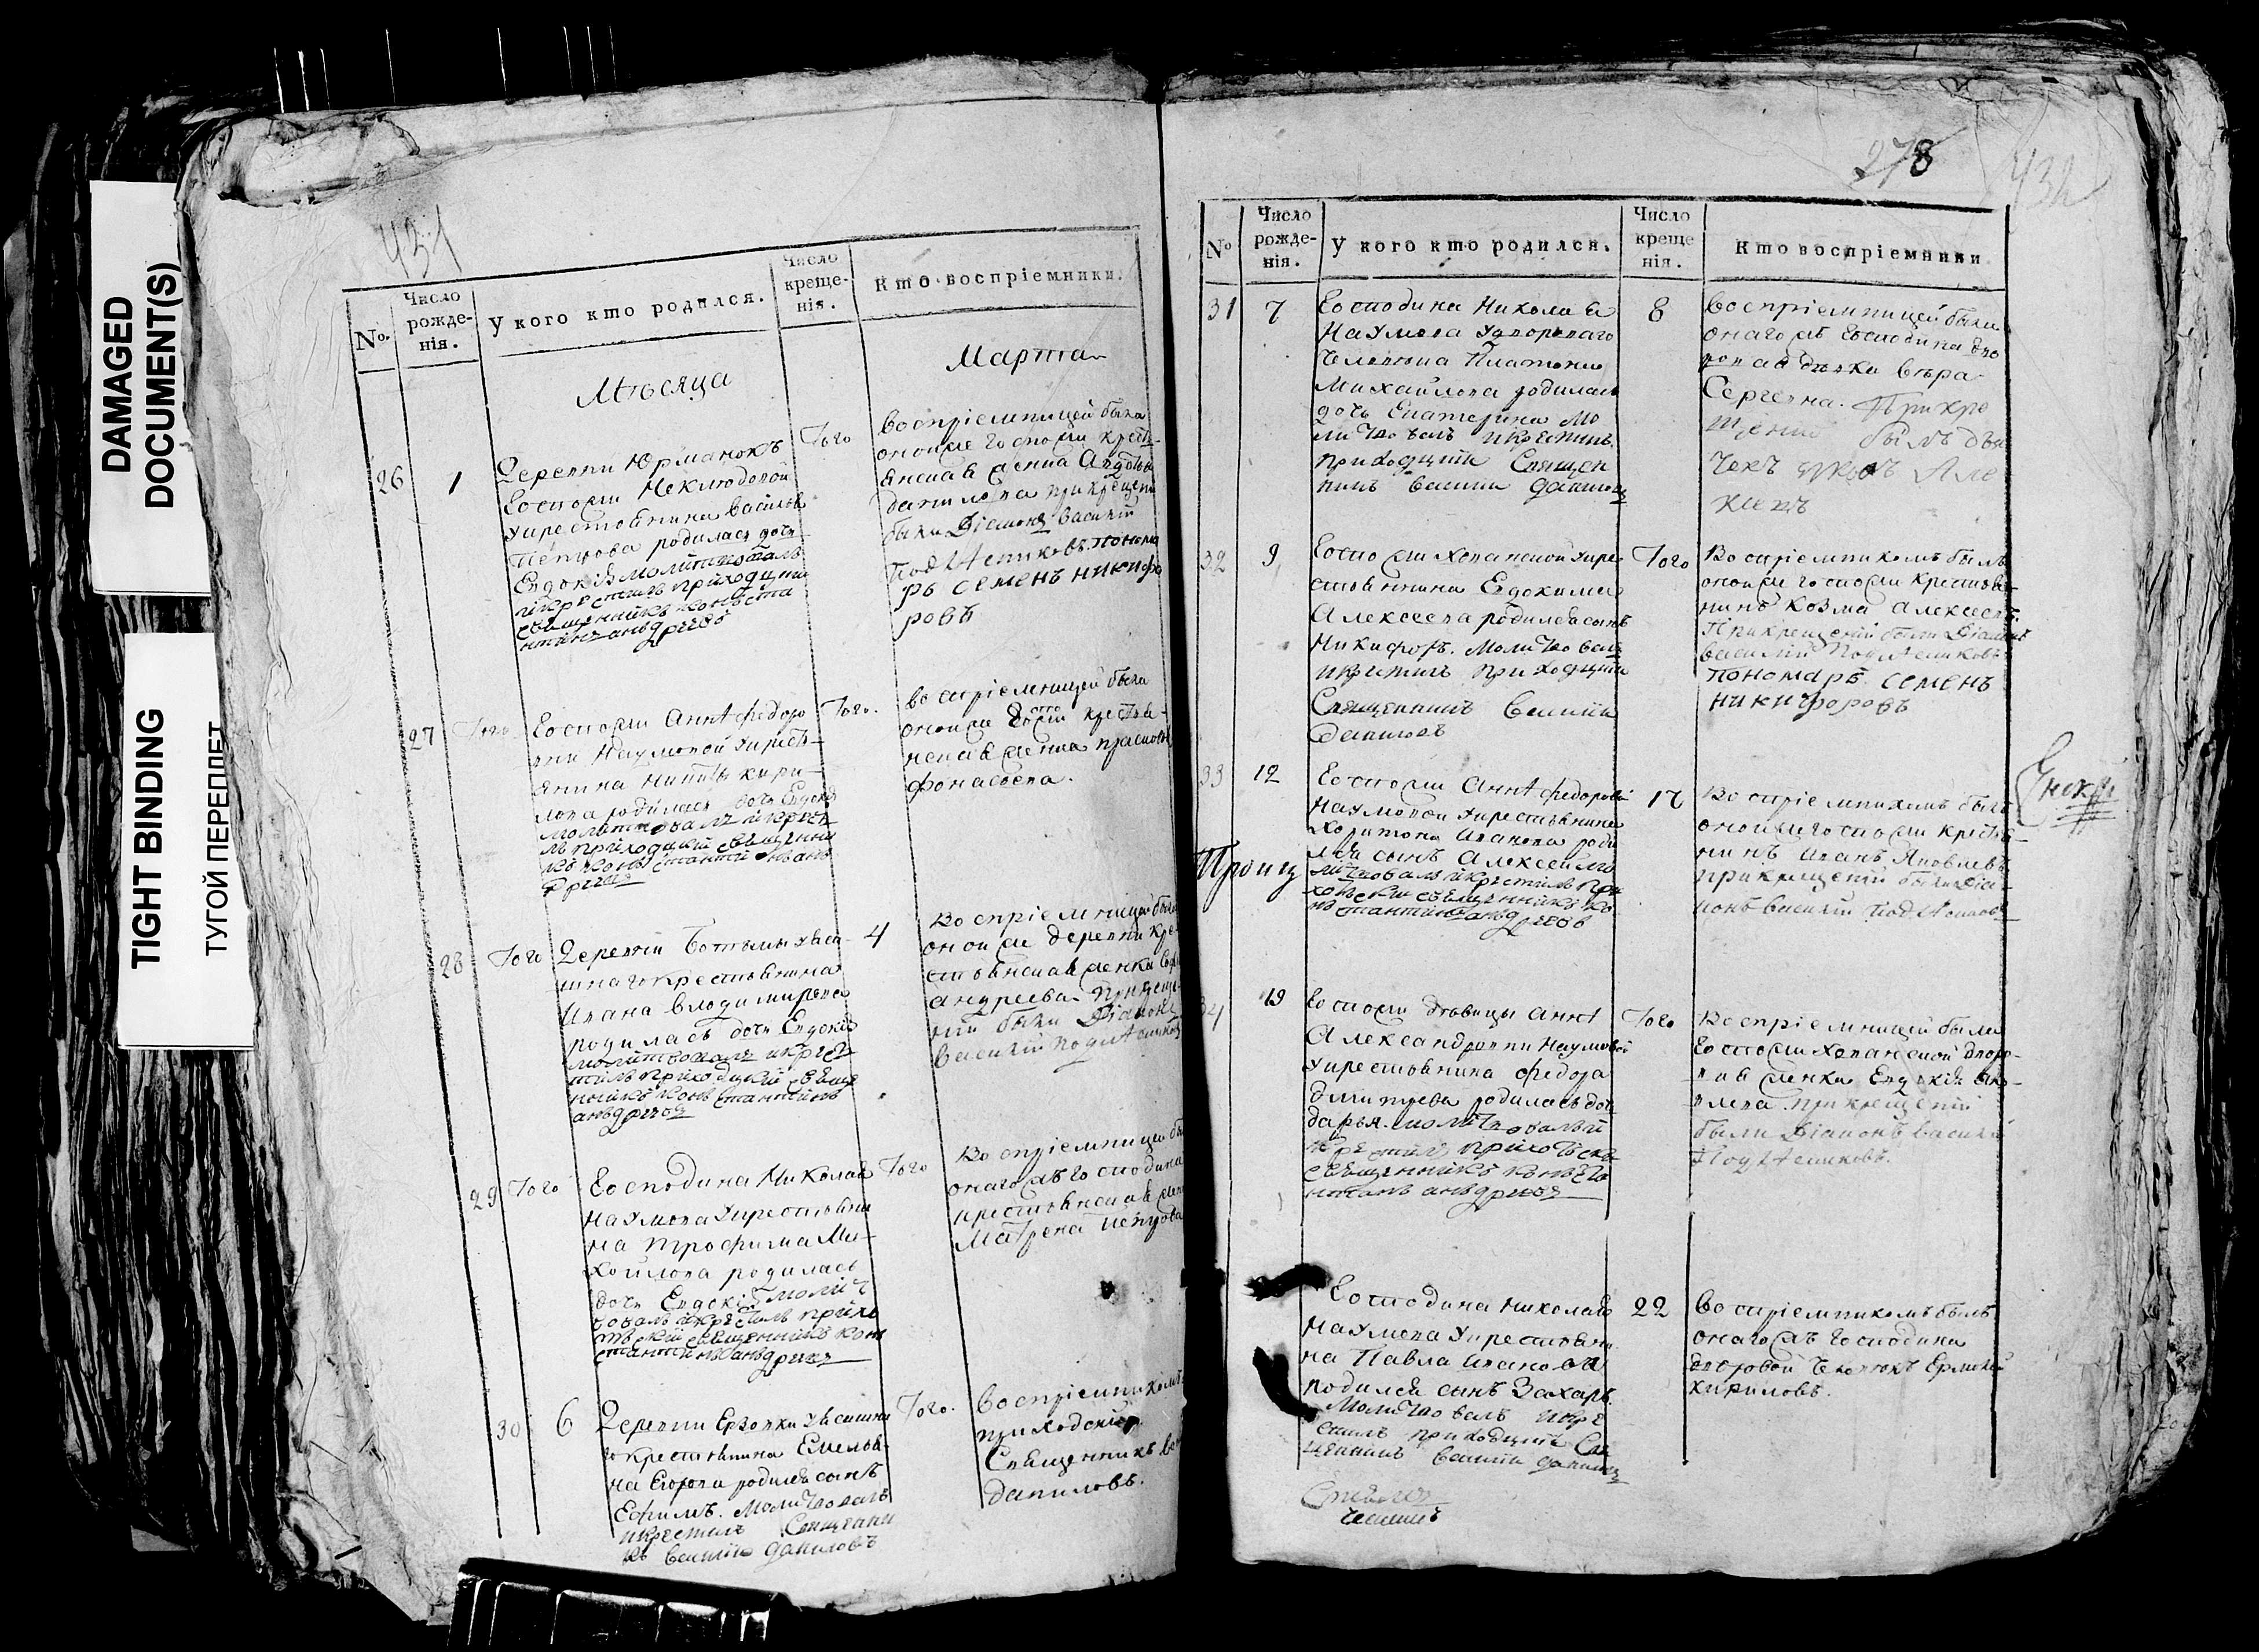 DAMAGED
DOCUMENT(S)
TIGHT BINDING
ТУГОЙ ПЕРЕПЛЕТ
431
No.
Число рожденія.
У кого кто родился.
Число крещенія.
Кто воспріемники.
Мѣсяца
Марта
26
1
Деревни Юрманокъ
Госпожи Неклюдовой
укрестьянина Василья
Петрова родилась дочь
Евдокѣя молитвовалъ
икрѣстилъ прiходцки
свѣщенникъ конъста
нтинъ аньдрѣевъ
Того
воспріемницей была
оной же госпожи кресть-
янская женка Авдотья
данилова прикрещенiи
были Діаконъ василiй
Подлѣсниковъ. понома
ръ семенъ никифо
ровъ
27
Того
Госпожи Анны Федоро
вны Наумовой укресть-
янина Никиты кири-
лова родилась дочь Евдокѣ
молитвовалъ икрѣст
лъ прiходцкiй свѣщенни
къ конъстантiнъ анъ
дрѣевъ
Того.
воспріемницей была
оной же Госпожи крестья-
нская женка прасковья
фонасьева.
28
Того
Деревни Ботьмы ясаш-
шнаго крестьянина
Ивана владимирова
родилась дочь Евдокiя
молитвовалъ икрѣс
тилъ прiходцкiй свѣще
нникъ конъстантiнъ
аньдрѣевъ
4
воспріемницей была
оной же деревни кре-
стьянская женка
андреева. прикреще-
нiи были Діаконъ
василiй подлѣсниковъ
29
Того
Господина Николая
Наумова укрестьяни
на трофима Ми-
хайлова родилась
дочь Евдокiя молiт
вовалъ iкрѣстилъ прiхо
тцкiй свѣщенникъ кон
стантинъ аньдрѣевъ
Того
воспріемницей бы
онагожъ господина
крестьянская жен
Матрена петрова
30
6
Деревни Ерзовки ясашна
го крестьянина Емелья-
на Егорова родился сынъ
Ефимъ. Молитвовалъ
икрестилъ Священни
къ Василiй Даниловъ
Того.
воспріемникомъ
приходскiй
Священникъ ва
даниловъ.
278
432
No
Число рожденія.
У кого кто родился.
Число крещенія.
Кто воспріемники
31
7
Господина Николая
Наумова удвороваго
человека Платона
Михайлова родилась
дочь Екатерина Мо
литвовалъ икрестилъ
приходцкiй Священ
никъ василiй Даниловъ
8
воспріемницей была
онагожъ Господина дво
ровая девка Вѣра
Сергевна. Прикре
щенiи былъ дья
чекъ
32
9
Госпожи Хованской укре
стьянина Евдокима
Алексеева родился сынъ
Никифоръ. Молитвовалъ
икрестилъ приходцкiй
Священникъ василiй
Даниловъ
Того
воспріемникомъ былъ
оной же госпожи крестья-
нинъ козма алексеевъ.
Прикрещенiи были Діаконъ
василiй Подлѣсниковъ
пономарь семенъ
никифоровъ
33
12
Госпожи Анны Федоровны
Наумовой укрестьянина
Харитона Иванова роди
лся сынъ Алексей мо
литвовалъ iкрѣстилъ при
хотцки свѣщенникъ ко
нъстантинъ аньдрѣевъ
17
воспріемникомъ былъ
оной же госпожи крестья-
нинъ Иванъ Яковлевъ
прикрещенiи были Діа-
конъ василiй Подлѣсниковъ
34
19
Госпожи дѣвицы анны
Александровны Наумовой
укрестьянина Федора
дмитрева родилась дочь
дарья. молитвовалъ и
крѣстилъ прiхотцки
свѣщенникъ конъста
нтинъ аньдрѣевъ
Того
воспріемницей была
Госпожи Хованской дворо-
вая женка Евдокiя яко-
влева. прикрещенiи
были Діаконъ василiй
Подлѣсниковъ.
Господина Николая
Наумова укрестьяни
на Павла Иванова
родился сынъ Захаръ.
Молитвовалъ икре
стилъ приходцкiй Свя
щенникъ василiй даниловъ
22
воспріемникомъ былъ
онагожъ Господина
дворовой человекъ Ермилъ
кириловъ.